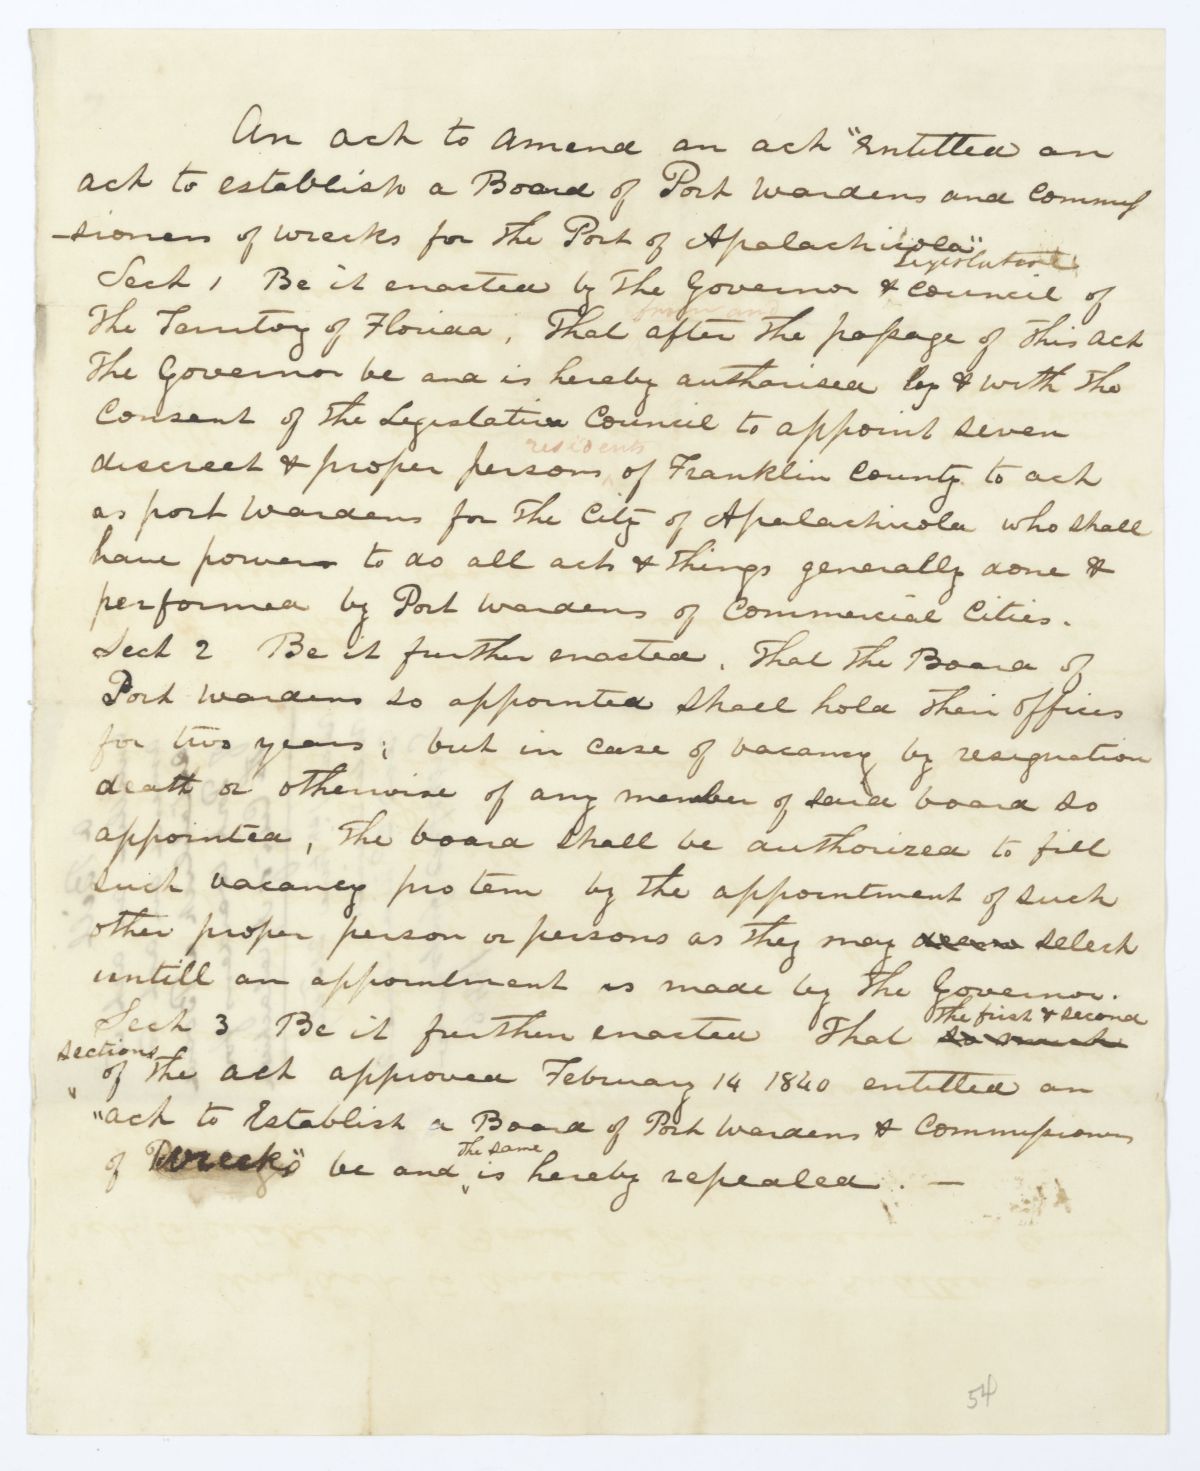 An act to amend an act "Entitled an
act to establish a Board of Port Wardens and Commis
-sioners of Wrecks for the Port of Apalachicola"
Legislative
Sect 1 Be it enacted by the Governor & Council of
from an
the Territory of Florida, That after the passage of this act
the Governor be and is hereby authorised by & with the
Consent of the Legislative Council to appoint seven
residents
discreet & proper persons, of Franklin County to act
as port Wardens for the City of Apalachicola who shall
have power to do all acts & things generally done &
performed by Port Wardens of Commercial Cities.
Sect 2 Be it further enacted. That the Board of
Port Wardens so appointed shall hold their offices
for two years; but in case of vacancy by resignation
death or otherwise of any member of said board so
appointed, the board shall be authorized to fill
such vacancy pro tem by the appointment of such
other proper person or persons as they may deem select
untill an appointment is made by the Governor.
the first & second
Sect 3 Be it further enacted That so much
sections
of the act approved February 14 1840 entitled an
"act to Establish a Board of Port Wardens & Commissioners
the same
of Wrecks" be and is hereby repealed. —
54